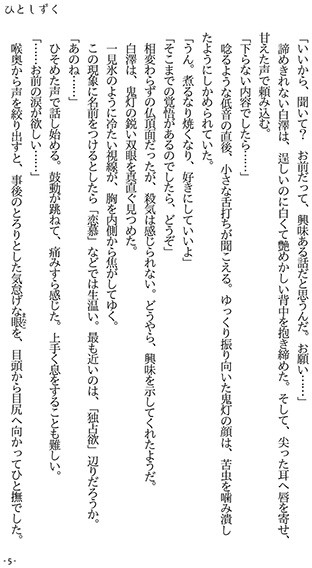 ひとしずく
「いいから、聞いて？　お前だって、興味ある話だと思うんだ。お願い……」
諦めきれない白澤は、逞しいのに白くて艶めかしい背中を抱き締めた。そして、尖った耳へ唇を寄せ、
甘えた声で頼み込む。
「下らない内容でしたら……」
唸るような低音の直後、小さな舌打ちが聞こえる。ゆっくり振り向いた鬼灯の顔は、苦虫を噛み潰し
たようにしかめられていた。
「うん。煮るなり焼くなり、好きにしていいよ」
「そこまでの覚悟があるのでしたら、どうぞ」
相変わらずの仏頂面だったが、殺気は感じられない。どうやら、興味を示してくれたようだ。
白澤は、鬼灯の鋭い双眼を真直ぐ見つめた。
一見氷のように冷たい視線が、胸を内側から焦がしてゆく。
この現象に名前をつけるとしたら「恋慕」などでは生温い。最も近いのは、「独占欲」辺りだろうか。
「あのね……」
ひそめた声で話し始める。鼓動が跳ねて、痛みすら感じた。上手く息をすることも難しい。
「……お前の涙が欲しい……」
喉奥から声を絞り出すと、事後のとろりとした気怠げな眼を、目頭から目尻へ向かってひと撫でした。
まなこ
-5-